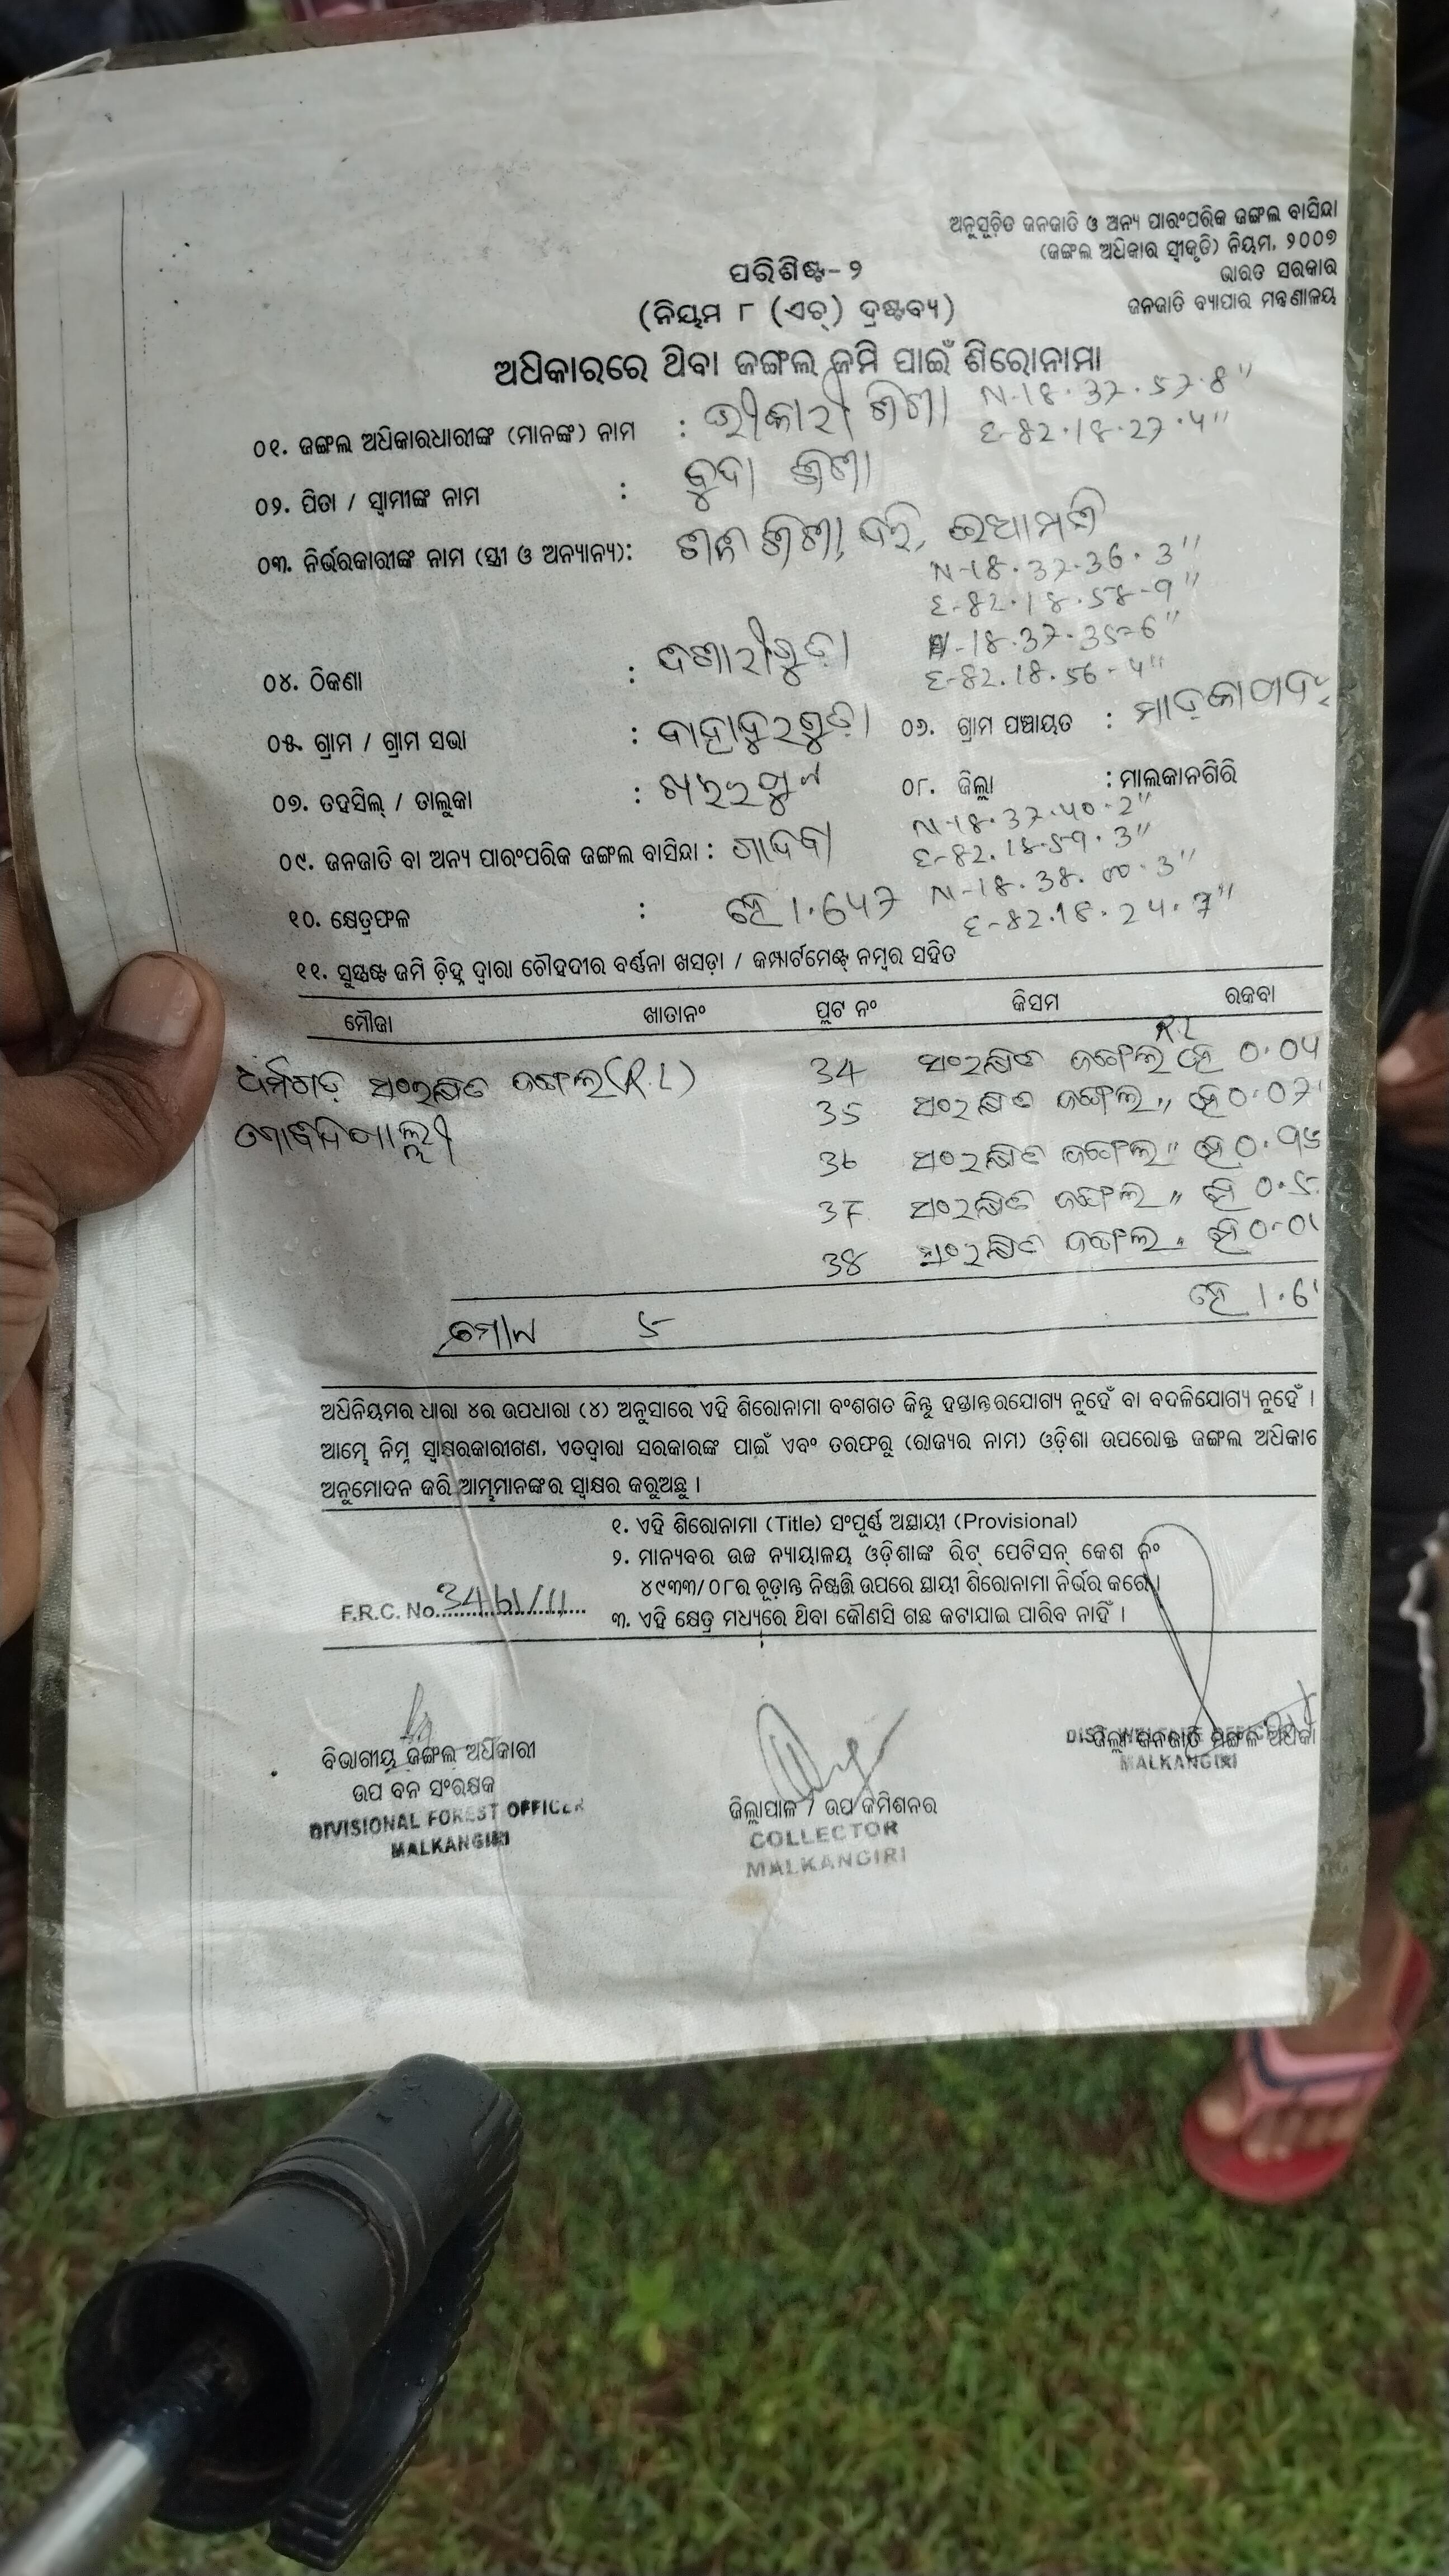 ଅନୁସୂଚିତ ଜନଜାତି ଓ ଅନ୍ୟ ପାରଂପରିକ ଜଙ୍ଗଲ ବାସିନ୍ଦା
(ଜଙ୍ଗଲ ଅଧିକାର ସ୍ୱୀକୃତି) ନିୟମ, ୨୦୦୭
ଭାରତ ସରକାର
ଜନଜାତି ବ୍ୟାପାର ମନ୍ତ୍ରଣାଳୟ
ପରିଶିଷ୍ଟ-୨
(ନିୟମ ୮ (ଏଚ୍) ଦ୍ରଷ୍ଟବ୍ୟ)
ଅଧିକାରରେ ଥିବା ଜଙ୍ଗଲ ଜମି ପାଇଁ ଶିରୋନାମା
N-18.37.57.8"
E-82.18.27.4"
୦୧. ଜଙ୍ଗଲ ଅଧିକାରଧାରୀଙ୍କ (ମାନଙ୍କ) ନାମ :
୦୨. ପିତା / ସ୍ୱାମୀଙ୍କ ନାମ : ବୁଦା
୦୩. ନିର୍ଭରକାରୀଙ୍କ ନାମ (ସ୍ତ୍ରୀ ଓ ଅନ୍ୟାନ୍ୟ):
N-18.37.36.3"
E-82.18.58-9"
N-18.37.35-6"
E-82.18.56-4"
୦୪. ଠିକଣା :
୦୫. ଗ୍ରାମ / ଗ୍ରାମ ସଭା : ବାହାଦୁରଗୁଡ଼ା ୦୬. ଗ୍ରାମ ପଞ୍ଚାୟତ :
୦୭. ତହସିଲ୍ / ତାଲୁକା : ଖଇରପୁଟ ୦୮. ଜିଲ୍ଲା : ମାଲକାନଗିରି
N-18.37.40.2"
E-82.18.59.3"
୦୯. ଜନଜାତି ବା ଅନ୍ୟ ପାରଂପରିକ ଜଙ୍ଗଲ ବାସିନ୍ଦା : ଗାଦବା
N-18.38.00.3"
E-82.18.24.7"
୧୦. କ୍ଷେତ୍ରଫଳ : ହେ 1.647
୧୧. ସୁସ୍ପଷ୍ଟ ଜମି ଚିହ୍ନ ଦ୍ୱାରା ଚୌହଦୀର ବର୍ଣ୍ଣନା ଖସଡ଼ା / କମ୍ପାର୍ଟମେଣ୍ଟ୍ ନମ୍ବର ସହିତ
ମୌଜା ଖାତାନଂ ପ୍ଲଟ ନଂ କିସମ ରକବା
ଧର୍ମଗଡ଼ ସଂରକ୍ଷିତ ଜଙ୍ଗେଲ (R.L) 34 ସଂରକ୍ଷିତ ଜଙ୍ଗେଲ R.L ହେ 0.04
35 ସଂରକ୍ଷିତ ଜଙ୍ଗେଲ " ହେ 0.07
36 ସଂରକ୍ଷିତ ଜଙ୍ଗେଲ " ହେ
37 ସଂରକ୍ଷିତ ଜଙ୍ଗେଲ " ହେ 0.5
38 ସଂରକ୍ଷିତ ଜଙ୍ଗେଲ " ହେ 0.01
ମୋଟ ୫ ହେ 1.6
ଅଧିନିୟମର ଧାରା ୪ର ଉପଧାରା (୪) ଅନୁସାରେ ଏହି ଶିରୋନାମା ବଂଶଗତ କିନ୍ତୁ ହସ୍ତାନ୍ତରଯୋଗ୍ୟ ନୁହେଁ ବା ବଦଳିଯୋଗ୍ୟ ନୁହେଁ ।
ଆମ୍ଭେ ନିମ୍ନ ସ୍ୱାକ୍ଷରକାରୀଗଣ, ଏତଦ୍ୱାରା ସରକାରଙ୍କ ପାଇଁ ଏବଂ ତରଫରୁ (ରାଜ୍ୟର ନାମ) ଓଡ଼ିଶା ଉପରୋକ୍ତ ଜଙ୍ଗଲ ଅଧିକାର
ଅନୁମୋଦନ କରି ଆମ୍ଭମାନଙ୍କର ସ୍ୱାକ୍ଷର କରୁଅଛୁ ।
୧. ଏହି ଶିରୋନାମା (Title) ସଂପୂର୍ଣ୍ଣ ଅସ୍ଥାୟୀ (Provisional)
୨. ମାନ୍ୟବର ଉଚ୍ଚ ନ୍ୟାୟାଳୟ ଓଡ଼ିଶାଙ୍କ ରିଟ୍ ପେଟିସନ୍ କେଶ ନଂ
୪୯୩୩/୦୮ର ଚୂଡ଼ାନ୍ତ ନିଷ୍ପତ୍ତି ଉପରେ ସ୍ଥାୟୀ ଶିରୋନାମା ନିର୍ଭର କରେ ।
F.R.C. No.
୩. ଏହି କ୍ଷେତ୍ର ମଧ୍ୟରେ ଥିବା କୌଣସି ଗଛ କଟାଯାଇ ପାରିବ ନାହିଁ ।
ବିଭାଗୀୟ ଜଙ୍ଗଲ ଅଧିକାରୀ
ଉପ ବନ ସଂରକ୍ଷକ
DIVISIONAL FOREST OFFICER
MALKANGIRI
ଜିଲ୍ଲାପାଳ / ଉପ କମିଶନର
COLLECTOR
MALKANGIRI
ଜିଲ୍ଲା ଜନଜାତି ମଙ୍ଗଳ ଅଧିକା
MALKANGIRI